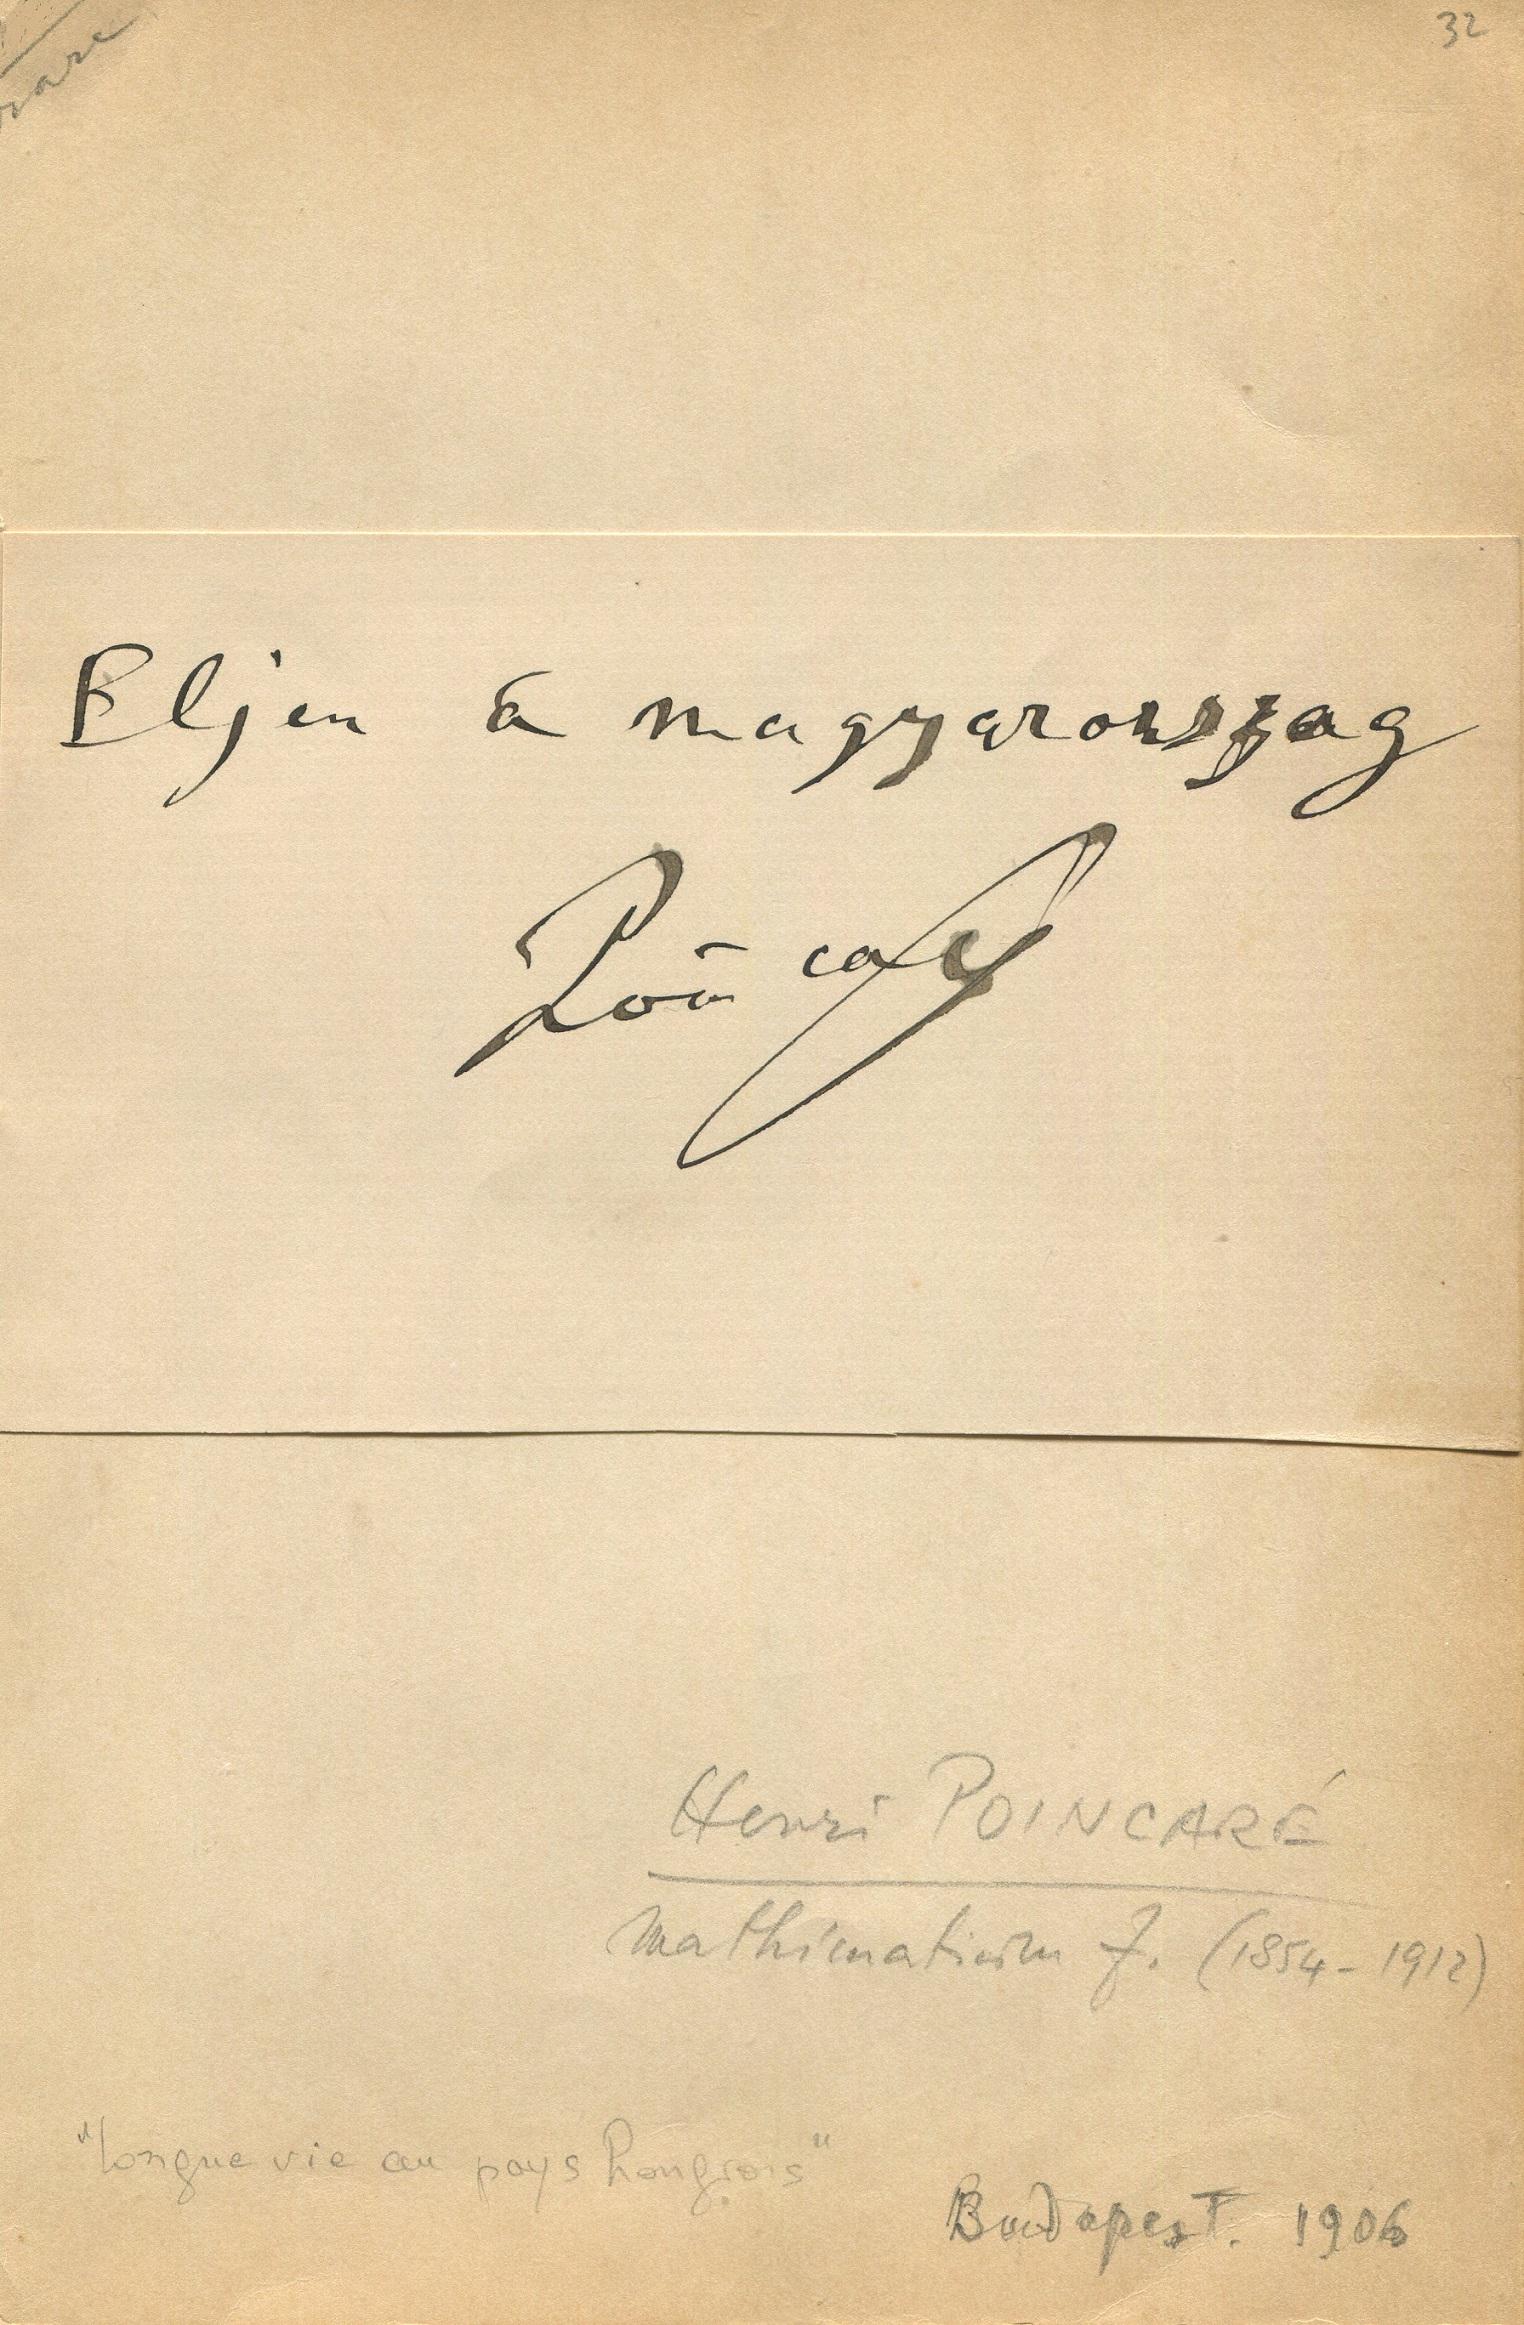 32
Eljen a magyarorszag
Poincaré
Henri POINCARÉ
Mathématicien f. (1854 - 1912)
"longue vie au pays hongrois"
Budapest. 1906